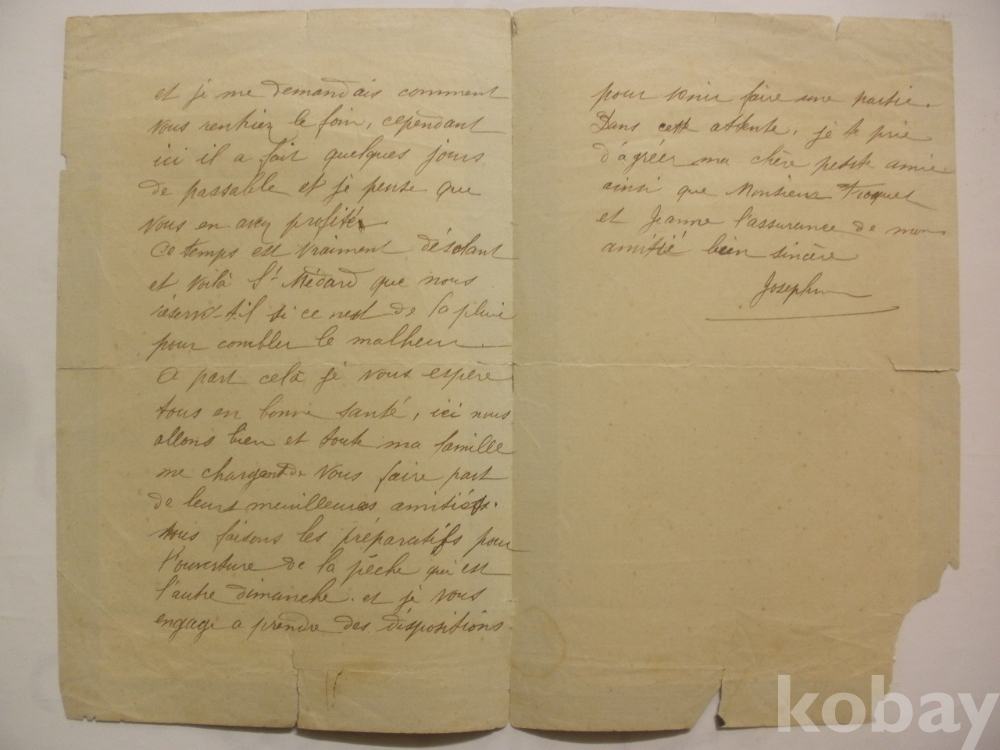 et je me demandais comment
vous rentriez le foin, cépendant
ici il a fait quelques jours
de passable et je pense que
vous en avez profités
Ce temps est vraiment désolant
et voilà St Médard que nous
réserve-t-il si ce nest de la pluie
pour combler le malheur.
A part celà je vous espère
tous en bonne santé, ici nous
allons bien et toute ma famille
me chargent de vous faire part
de leurs meuilleures amitiés.
nous faisons les préparatifs pour
l'ouverture de la pêche qui est
l'autre dimanche. et je vous
engage a prendre des dispositions
pour venir faire une partie.
Dans cette attente, je te prie
d'agréer ma chère petite amie
ainsi que Monsieur
et Jeanne l'assurance de mon
amitié bien sincère
kobay